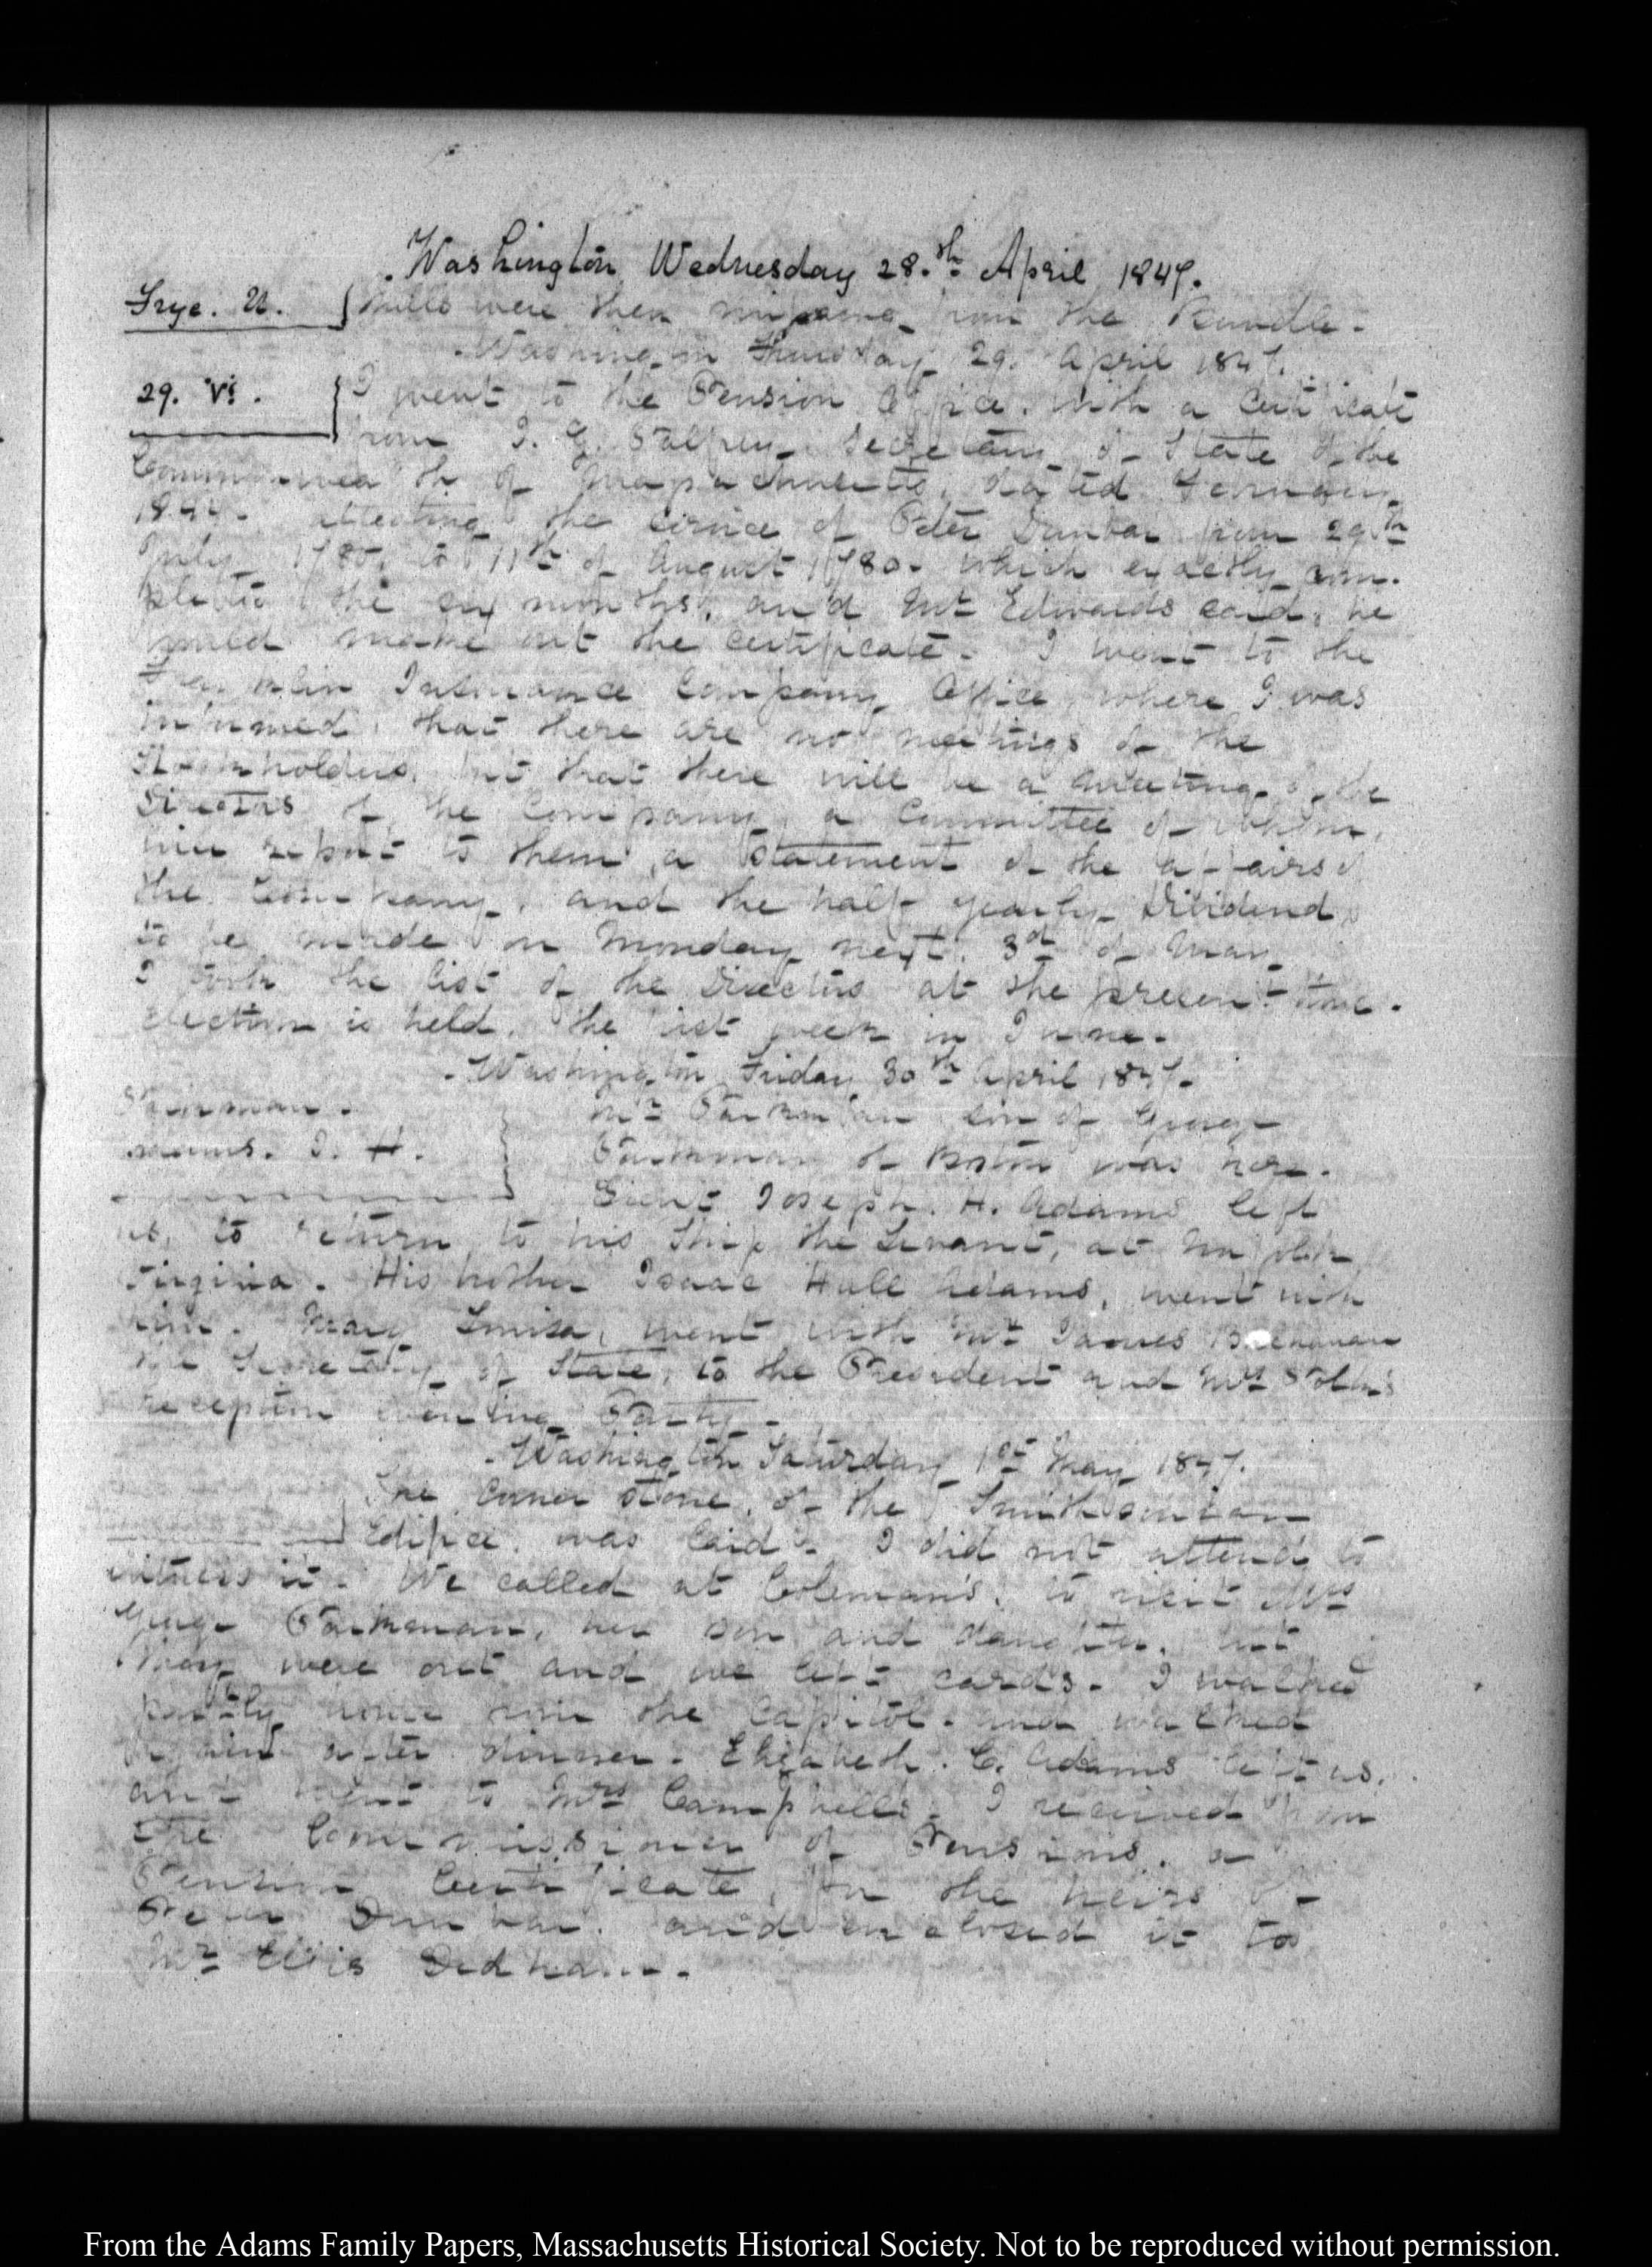 Washington Wednesday 28.th April 1847.
Frye. N. were then missing from the Bundle.
Washington Thursday 29. April 1847.
29. VI. I went to the Pension Office, with a Certificate
from J. G. Palfrey Secretary of State of the
Commonwealth of Massachusetts, dated
attesting the service of Peter Dunbar from 29th
July 1780. to 11th of August 1780. which exactly com-
pletes the six months, and Mr Edwards said, he
would make out the certificate. I went to the
Franklin Insurance Company Office, where I was
informed, that there are no meetings of the
Stockholders, but that there will be a meeting of the
Directors of the Company, a Committee of whom,
will report to them, a Statement of the affairs of
the Company, and the half yearly Dividend,
to be made on Monday next. 3d of May
I took the list of the Directors at the present time.
Election is held, the week in June.
Washington Friday 30th April 1847.
Mr Parkman son of George
J. H. Parkman of Boston was here.
Lieut Joseph. H. Adams left
us, to return, to his Ship the Levant, at Norfolk
Virginia. His brother Isaac Hull Adams, went with
him. Mary Louisa, went with Mr James Buchanan
the Secretary of State, to the President and Mrs Polk's
reception evening Party.
Washington Saturday 1st May 1847.
The Corner stone, of the Smithsonian
Edifice, was laid. I did not attend to
witness it. We called at Coleman's, to visit Mrs
George Parkman, her son and daughter, but
they were out and we left cards. I walked
partly home from the Capitol. and walked
again after dinner. Elizabeth. C. Adams left us,
and went to Mrs Campbell's. I received from
the Commissioner of Pensions, a
Pension Certificate, for the heirs of
Peter Dunbar. and enclosed it to
Mr Ellis Dedham.
From the Adams Family Papers, Massachusetts Historical Society. Not to be reproduced without permission.